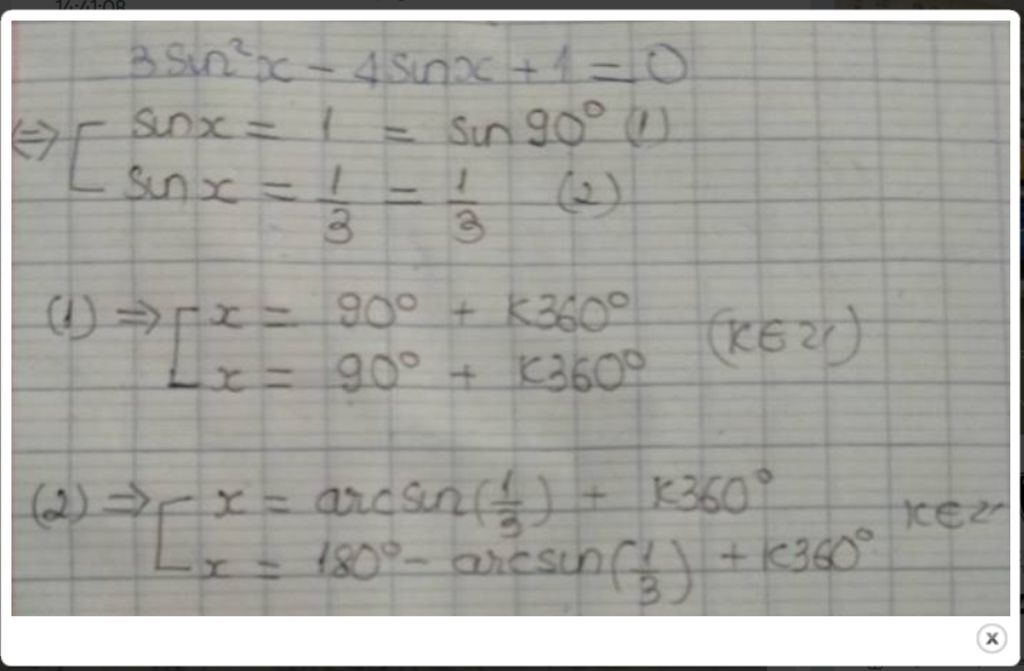 14:41:08
3sin²x - 4sinx + 1 = 0
⇔ [ sinx = 1 = sin90° (1)
sinx = 1/3 = 1/3 (2)
(1) ⇒ [ x = 90° + K360°
x = 90° + K360° (K∈Z)
(2) ⇒ [ x = arcsin(1/3) + K360°
x = 180° - arcsin(1/3) + K360° K∈Z